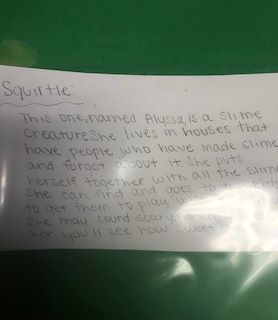 Squirtle:
This one, named Alyssa, is a slime
creature. She lives in houses that
have people who have made slime
and forgot about it She puts
herself together with all the slime
she can find and goes to
to get them to play
She may sound scary
her you'll see how sweet